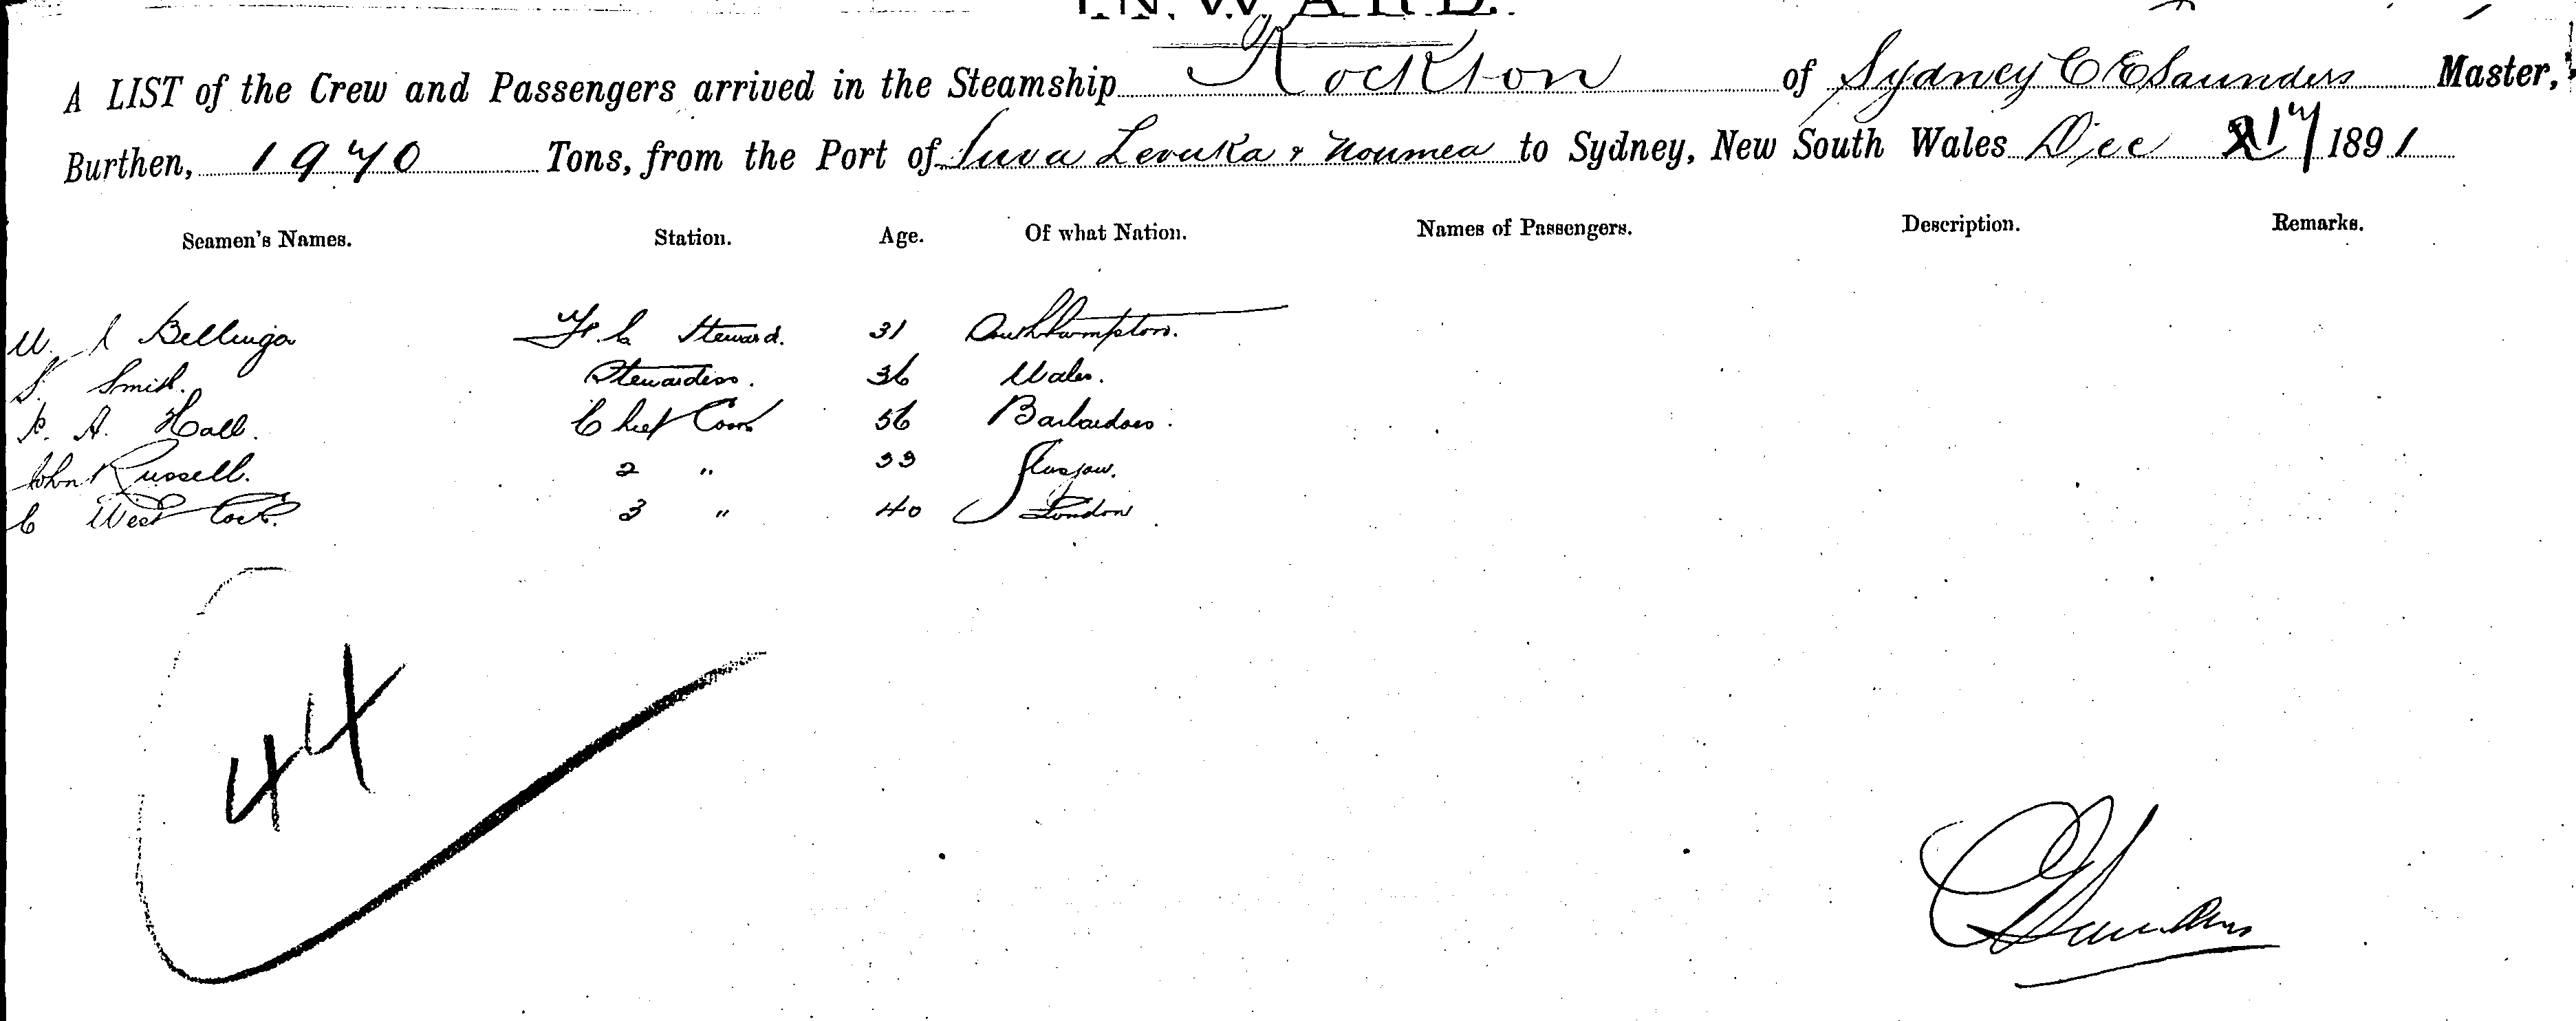 INWARD.
A LIST of the Crew and Passengers arrived in the Steamship Rockton of Sydney C E Saunders Master,
Burthen, 1970 Tons, from the Port of Suva Levuka & Noumea to Sydney, New South Wales Dec 17 1891
Seamen's Names. Station. Age. Of what Nation. Names of Passengers. Description. Remarks.
Bellinga Steward. 31 Southhampton.
S. Smith. Stewardess. 36 Wales.
A. Hall. Chief Cook 56 Barbardoes.
John Russell. 2 " 33 Glasgow.
C West 3 " 40 London
44
C E Saunders